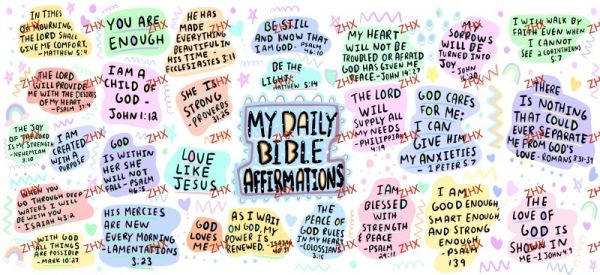 IN TIMES
OF MOURNING
THE LORD SHALL
GIVE ME COMFORT.
- MATTHEW 5:4
YOU ARE
ENOUGH
HE HAS
MADE
EVERYTHING
BEAUTIFUL IN
HIS TIME -
ECCLESIASTES 3:11
BE STILL
AND KNOW THAT
I AM GOD. - PSALM
46:10
MY HEART
WILL NOT BE
TROUBLED OR AFRAID
GOD HAS GIVEN ME
PEACE - JOHN 14:27
MY
SORROWS
WILL BE
TURNED INTO
JOY - JOHN
16:20
I WILL WALK BY
FAITH EVEN WHEN
I CANNOT
SEE 2 CORINTHIANS
5:7
THE LORD
WILL PROVIDE
ME WITH THE DESIRES
OF MY HEART.
- PSALM 37:4
I AM A
CHILD OF
GOD -
JOHN 1:12
SHE IS
STRONG
- PROVERBS
31:25
BE THE
LIGHT
MATTHEW 5:14
MY DAILY
BIBLE
AFFIRMATIONS
THE LORD
WILL
SUPPLY ALL
MY NEEDS
- PHILIPPIANS
4:19
GOD CARES
FOR ME;
I CAN
GIVE HIM
MY ANXIETIES
- 1 PETER 5:7
THERE
IS NOTHING
THAT COULD
EVER SEPARATE
ME FROM GOD'S
LOVE - ROMANS 8:31-39
THE JOY
OF THE LORD
IS MY STRENGTH
- NEHEMIAH
8:10
I AM
CREATED
WITH A
PURPOSE
GOD
IS WITHIN
HER SHE WILL
NOT FALL - PSALM
46:5
LOVE
LIKE
JESUS
WHEN YOU
GO THROUGH DEEP
WATERS I WILL
BE WITH YOU
- ISAIAH 43:2
HIS MERCIES
ARE NEW
EVERY MORNING
- LAMENTATIONS
3:23
GOD
LOVES
ME!
AS I WAIT
ON GOD, MY
POWER IS
RENEWED. - ISAIAH
40:31
THE
PEACE OF
GOD RULES
IN MY HEART
COLOSSIANS
3:15
I AM
BLESSED
WITH
STRENGTH
& PEACE
- PSALM
29:11
I AM
GOOD ENOUGH,
SMART ENOUGH,
AND STRONG
ENOUGH
- PSALM
139
THE
LOVE OF
GOD IS
SHOWN IN
ME - 1 JOHN 4:9
WITH GOD
ALL THINGS
ARE POSSIBLE
- MARK 10:27
ZHX